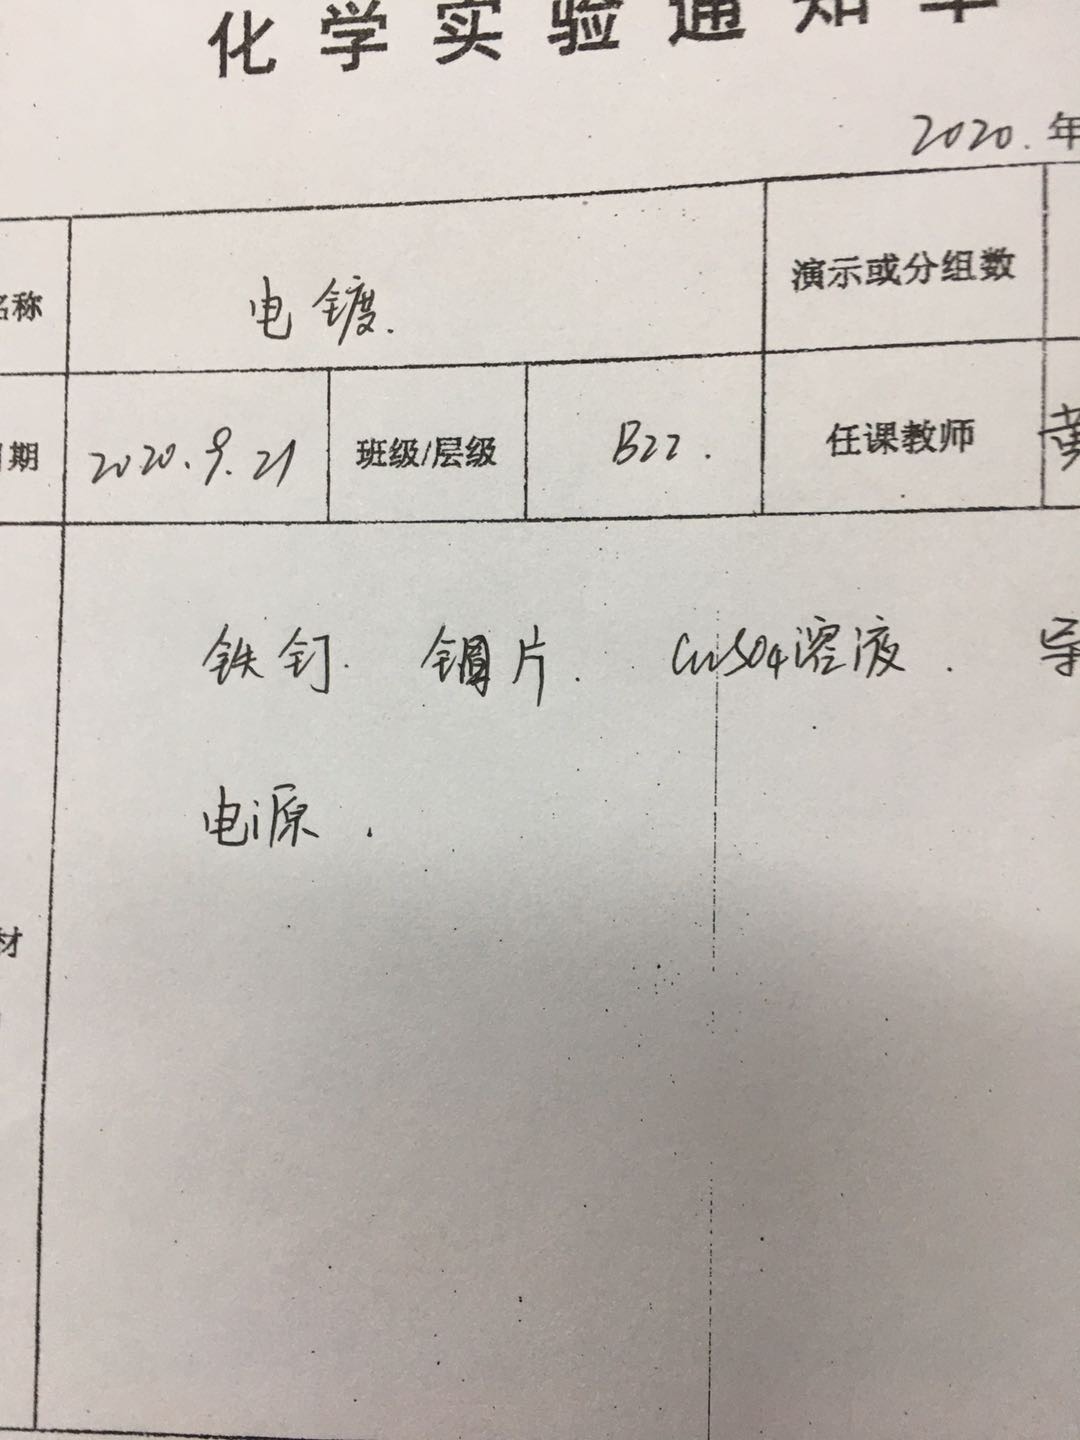 化学实验通知单
2020.年
名称 电镀. 演示或分组数
日期 2020.9.21 班级/层级 B22. 任课教师 黄
铁钉. 铜片. CuSO4溶液. 导
电源.
材